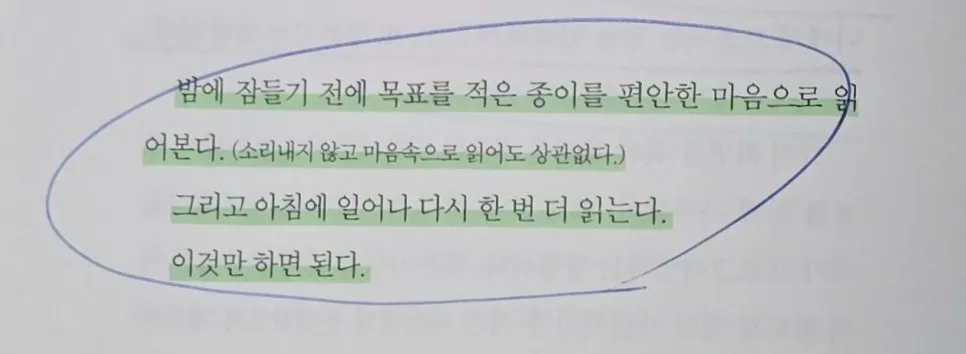 밤에 잠들기 전에 목표를 적은 종이를 편안한 마음으로 읽
어본다. (소리내지 않고 마음속으로 읽어도 상관없다.)
그리고 아침에 일어나 다시 한 번 더 읽는다.
이것만 하면 된다.